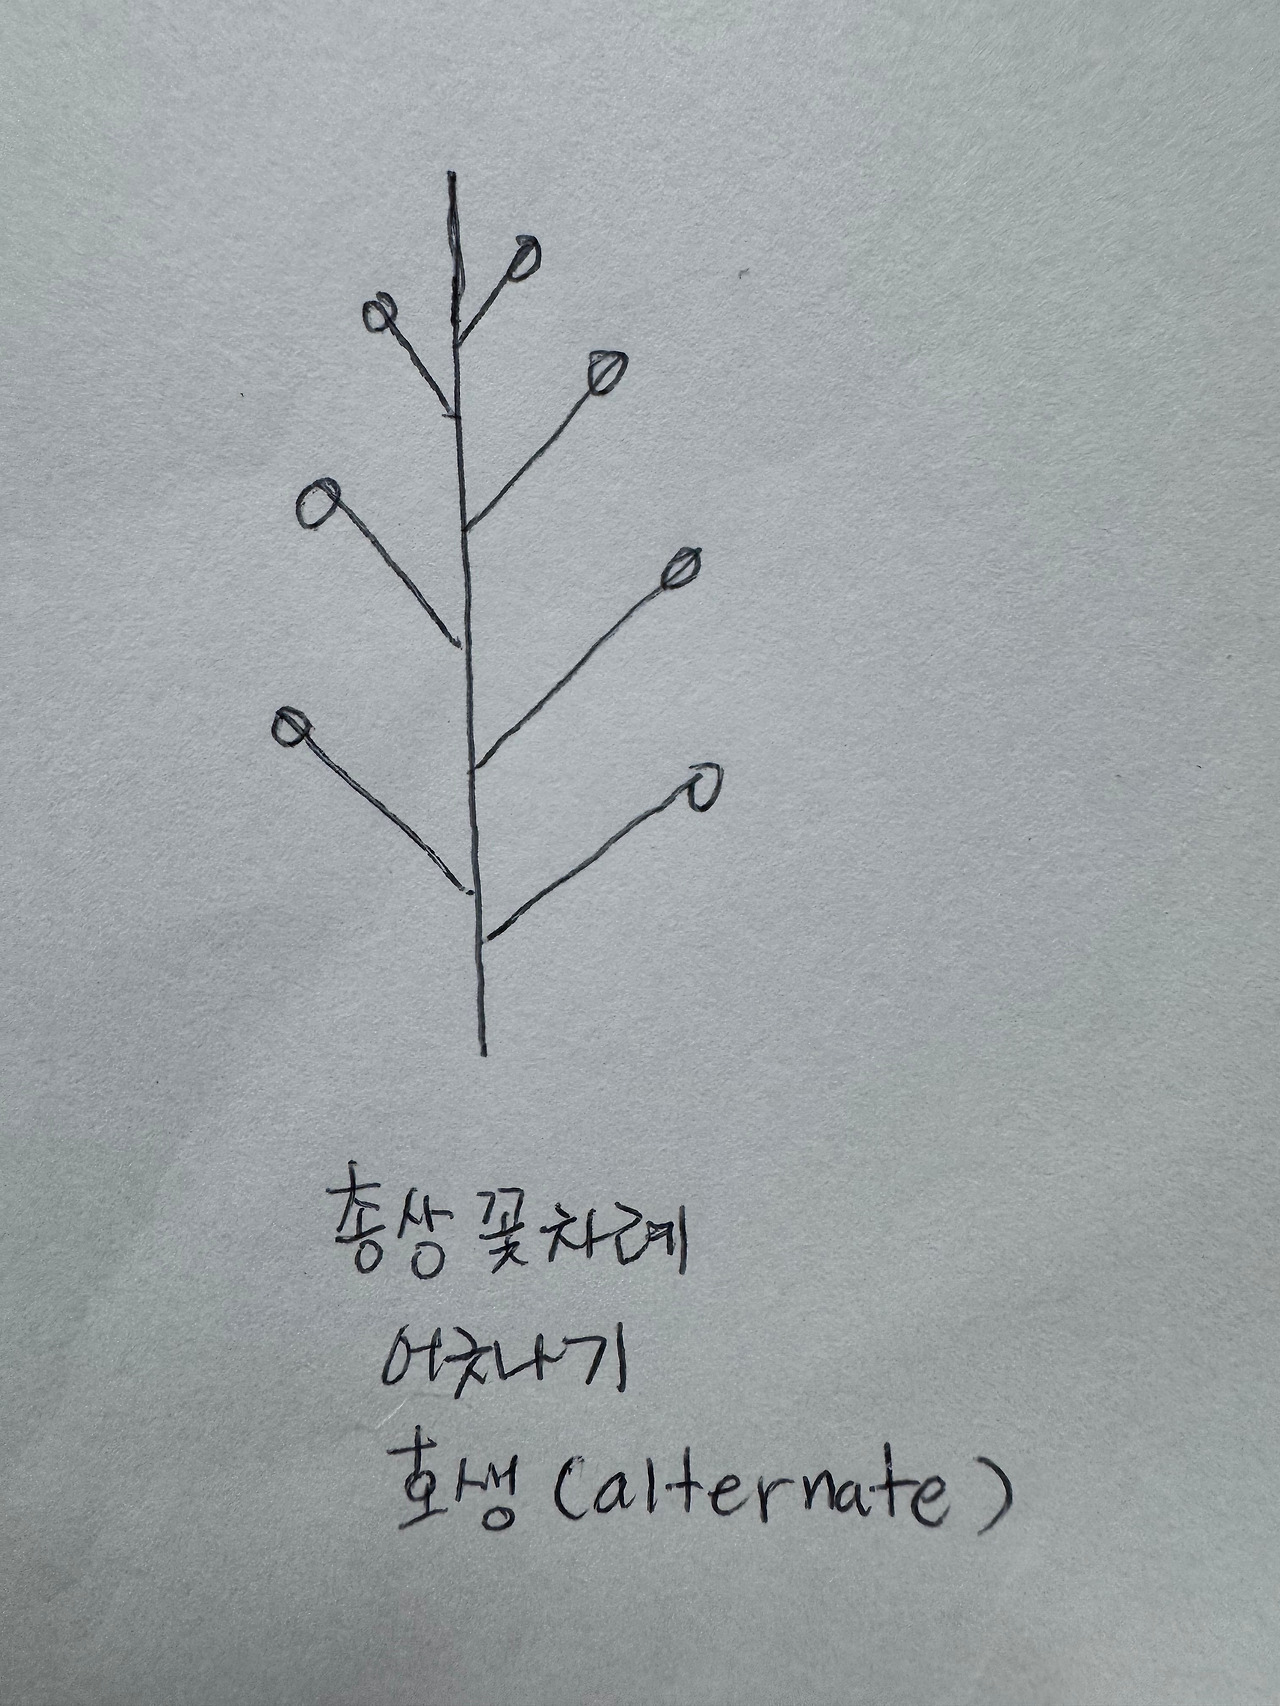 총상 꽃차례
어긋나기
호생 (alternate)